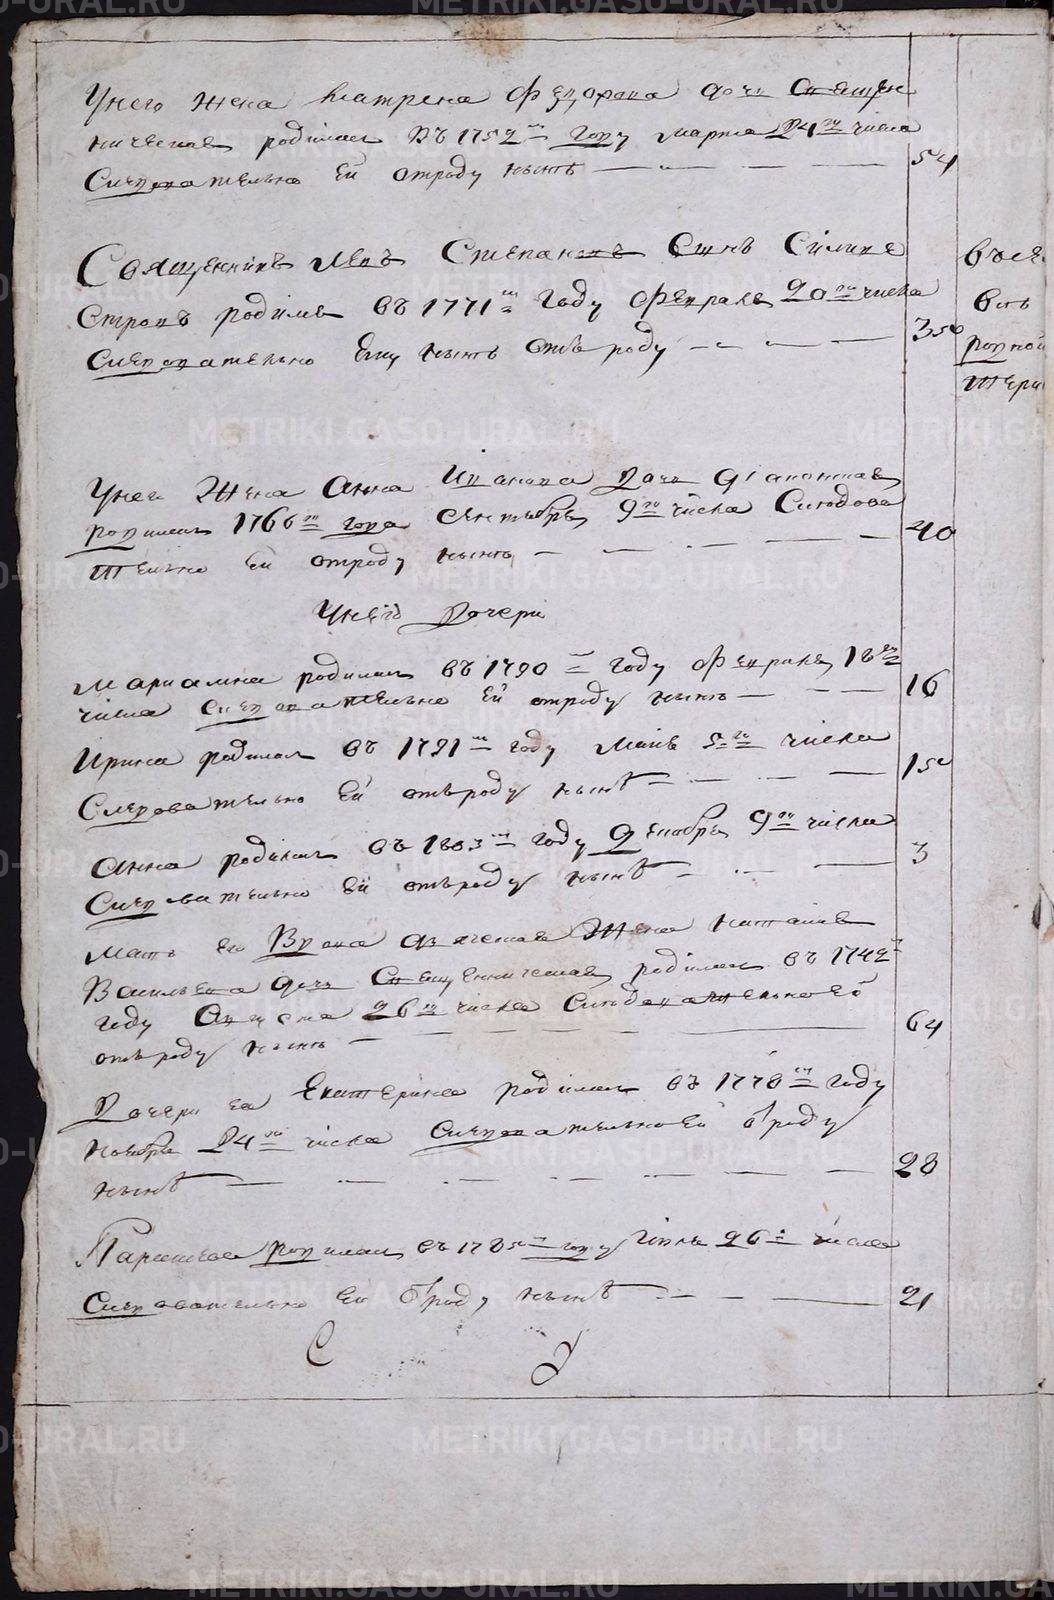 У него жена Матрена Федорова дочь Священ
ническая родилась въ 1752 м году марта 24 го числа
Следовательно ей отроду нынѣ 54
Священникъ Левъ Степановъ Сынъ
родился въ 1771 м году Февраля 20 го числа
Следовательно ему нынѣ отъ роду 35
У него Жена Анна Иванова Дочь диаконская
родилась 1766 го года сентября 9 го числа Следова
тельно ей отроду нынѣ 40
У него Дочери
Мариамна родилась въ 1790 м году Февраля 18 го
числа Следовательно ей отроду нынѣ 16
Ирина родилась въ 1791 м году Маия 5 го числа
Следовательно ей отъ роду нынѣ 15
Анна родилась въ 1803 м году Декабря 9 го числа
Следовательно ей отъ роду нынѣ 3
Мать его Вдова дьяческая Жена Наталия
Васильева дочь Священническая родилась въ 1742
году Августа 26 го числа Следовательно ей
отъ роду нынѣ 64
Дочери ея Екатерина родилась въ 1778 м году
Ноября 24 го числа Следовательно ей отроду
нынѣ 28
Параскева родилась въ 1785 м году Июля 26 числа
Следовательно ей отроду нынѣ 21
въ
METRIKI.GASO-URAL.RU